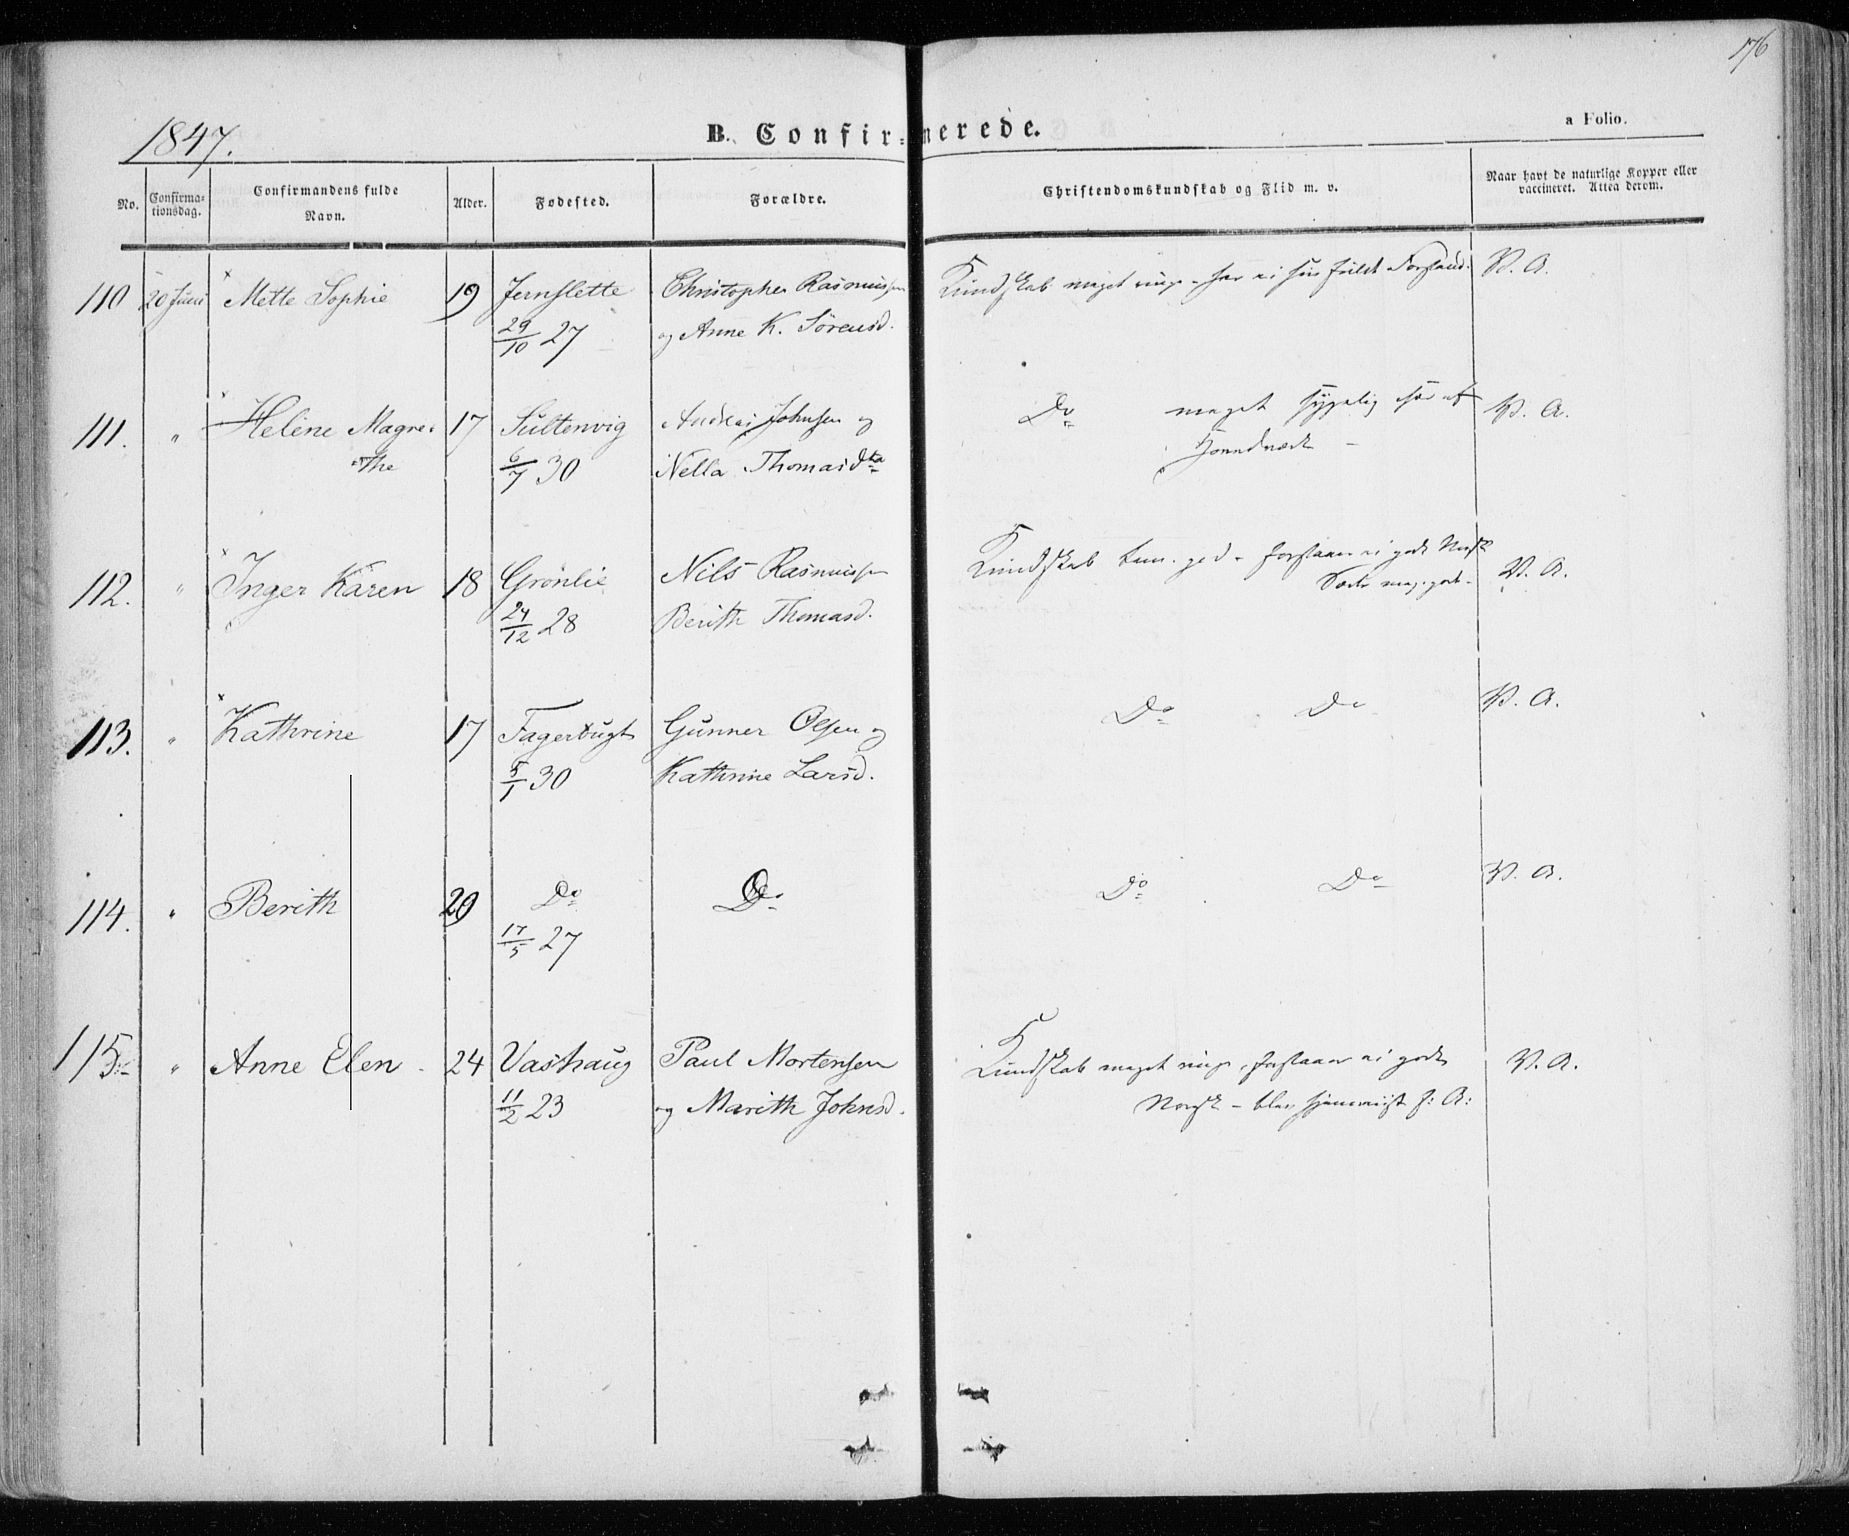 176
1847.
B. Confir=merede.
a Folio.
No.
Confirma-
tionsdag.
Confirmandens fulde
Navn.
Alder.
Fødested.
Forældre.
Christendomskundskab og Flid m. v.
Naar havt de naturlige Kopper eller
vaccineret. Attea derom.
110 20 Juni Mette Sophie 19 Jernslette Christopher Rasmussen Kundskab meget ringe - har ei sin fulde Forstand. V. A.
29/10 27 og Anne K. Sörensd.
111. " Helene Magre= 17 Sultenvig Andreas Johnsen og Do meget sygelig V. A.
the 6/7 30 Nella Thomasdta
112. " Inger Karen 18 Grönlie Nils Rasmussen Kundskab tem. god - forstaaer ei godt Norsk V. A.
24/12 28 Berith Thomasd.
113. " Kathrine 17 Fagerbugt Gunner Olsen og Do Do V. A.
5/1 30 Kathrine Larsd.
114. " Berith 20 Do Do Do Do V. A.
17/5 27
115 " Anne Elen 24 Vashaug Paul Mortensen Kundskab meget ringe, forstaaer ei godt V. A.
11/2 23 og Marith Johnsd. Norsk - blev hjemviist f: A: